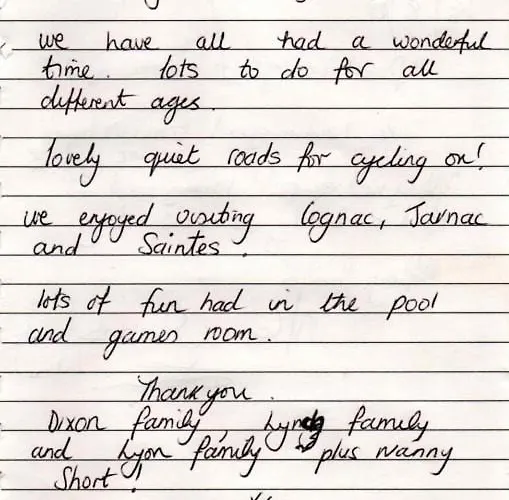 we have all had a wonderful
time. lots to do for all
different ages.
lovely quiet roads for cycling on!
we enjoyed visiting Cognac, Jarnac
and Saintes.
lots of fun had in the pool
and games room.
Thankyou.
Dixon family, family
and Lyon family plus Nanny
Short!